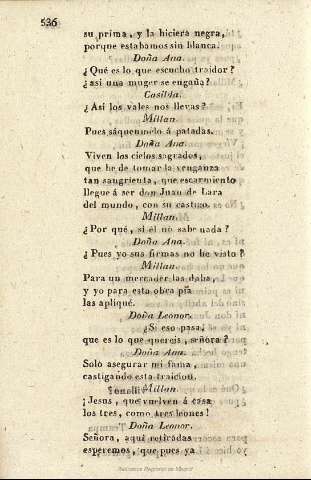 536
su prima, y la hiciera negra,
porque estabamos sin blanca.
Doña Ana.
¿Qué es lo que escucho traidor?
¿asi una muger se engaña?
Casilda.
¿Asi los vales nos llevas?
Millan.
Pues sáquenmelo á patadas.
Doña Ana.
Viven los cielos sagrados,
que he de tomar la venganza
tan sangrienta, que escarmiento
llegue á ser don Juan de Lara
del mundo, con su castigo.
Millan.
¿Por qué, si él no sabe nada?
Doña Ana.
¿Pues yo sus firmas no he visto?
Millan.
Para un mercader las daba,
y yo para esta obra pia
las apliqué.
Doña Leonor.
¿Si eso pasa,
que es lo que quereis, señora?
Doña Ana.
Solo asegurar mi fama,
castigando esta traicion.
Millan.
¡Jesus, que vuelven á casa
los tres, como tres leones!
Doña Leonor.
Señora, aqui retiradas
esperemos, que pues ya
Biblioteca Regional de Madrid